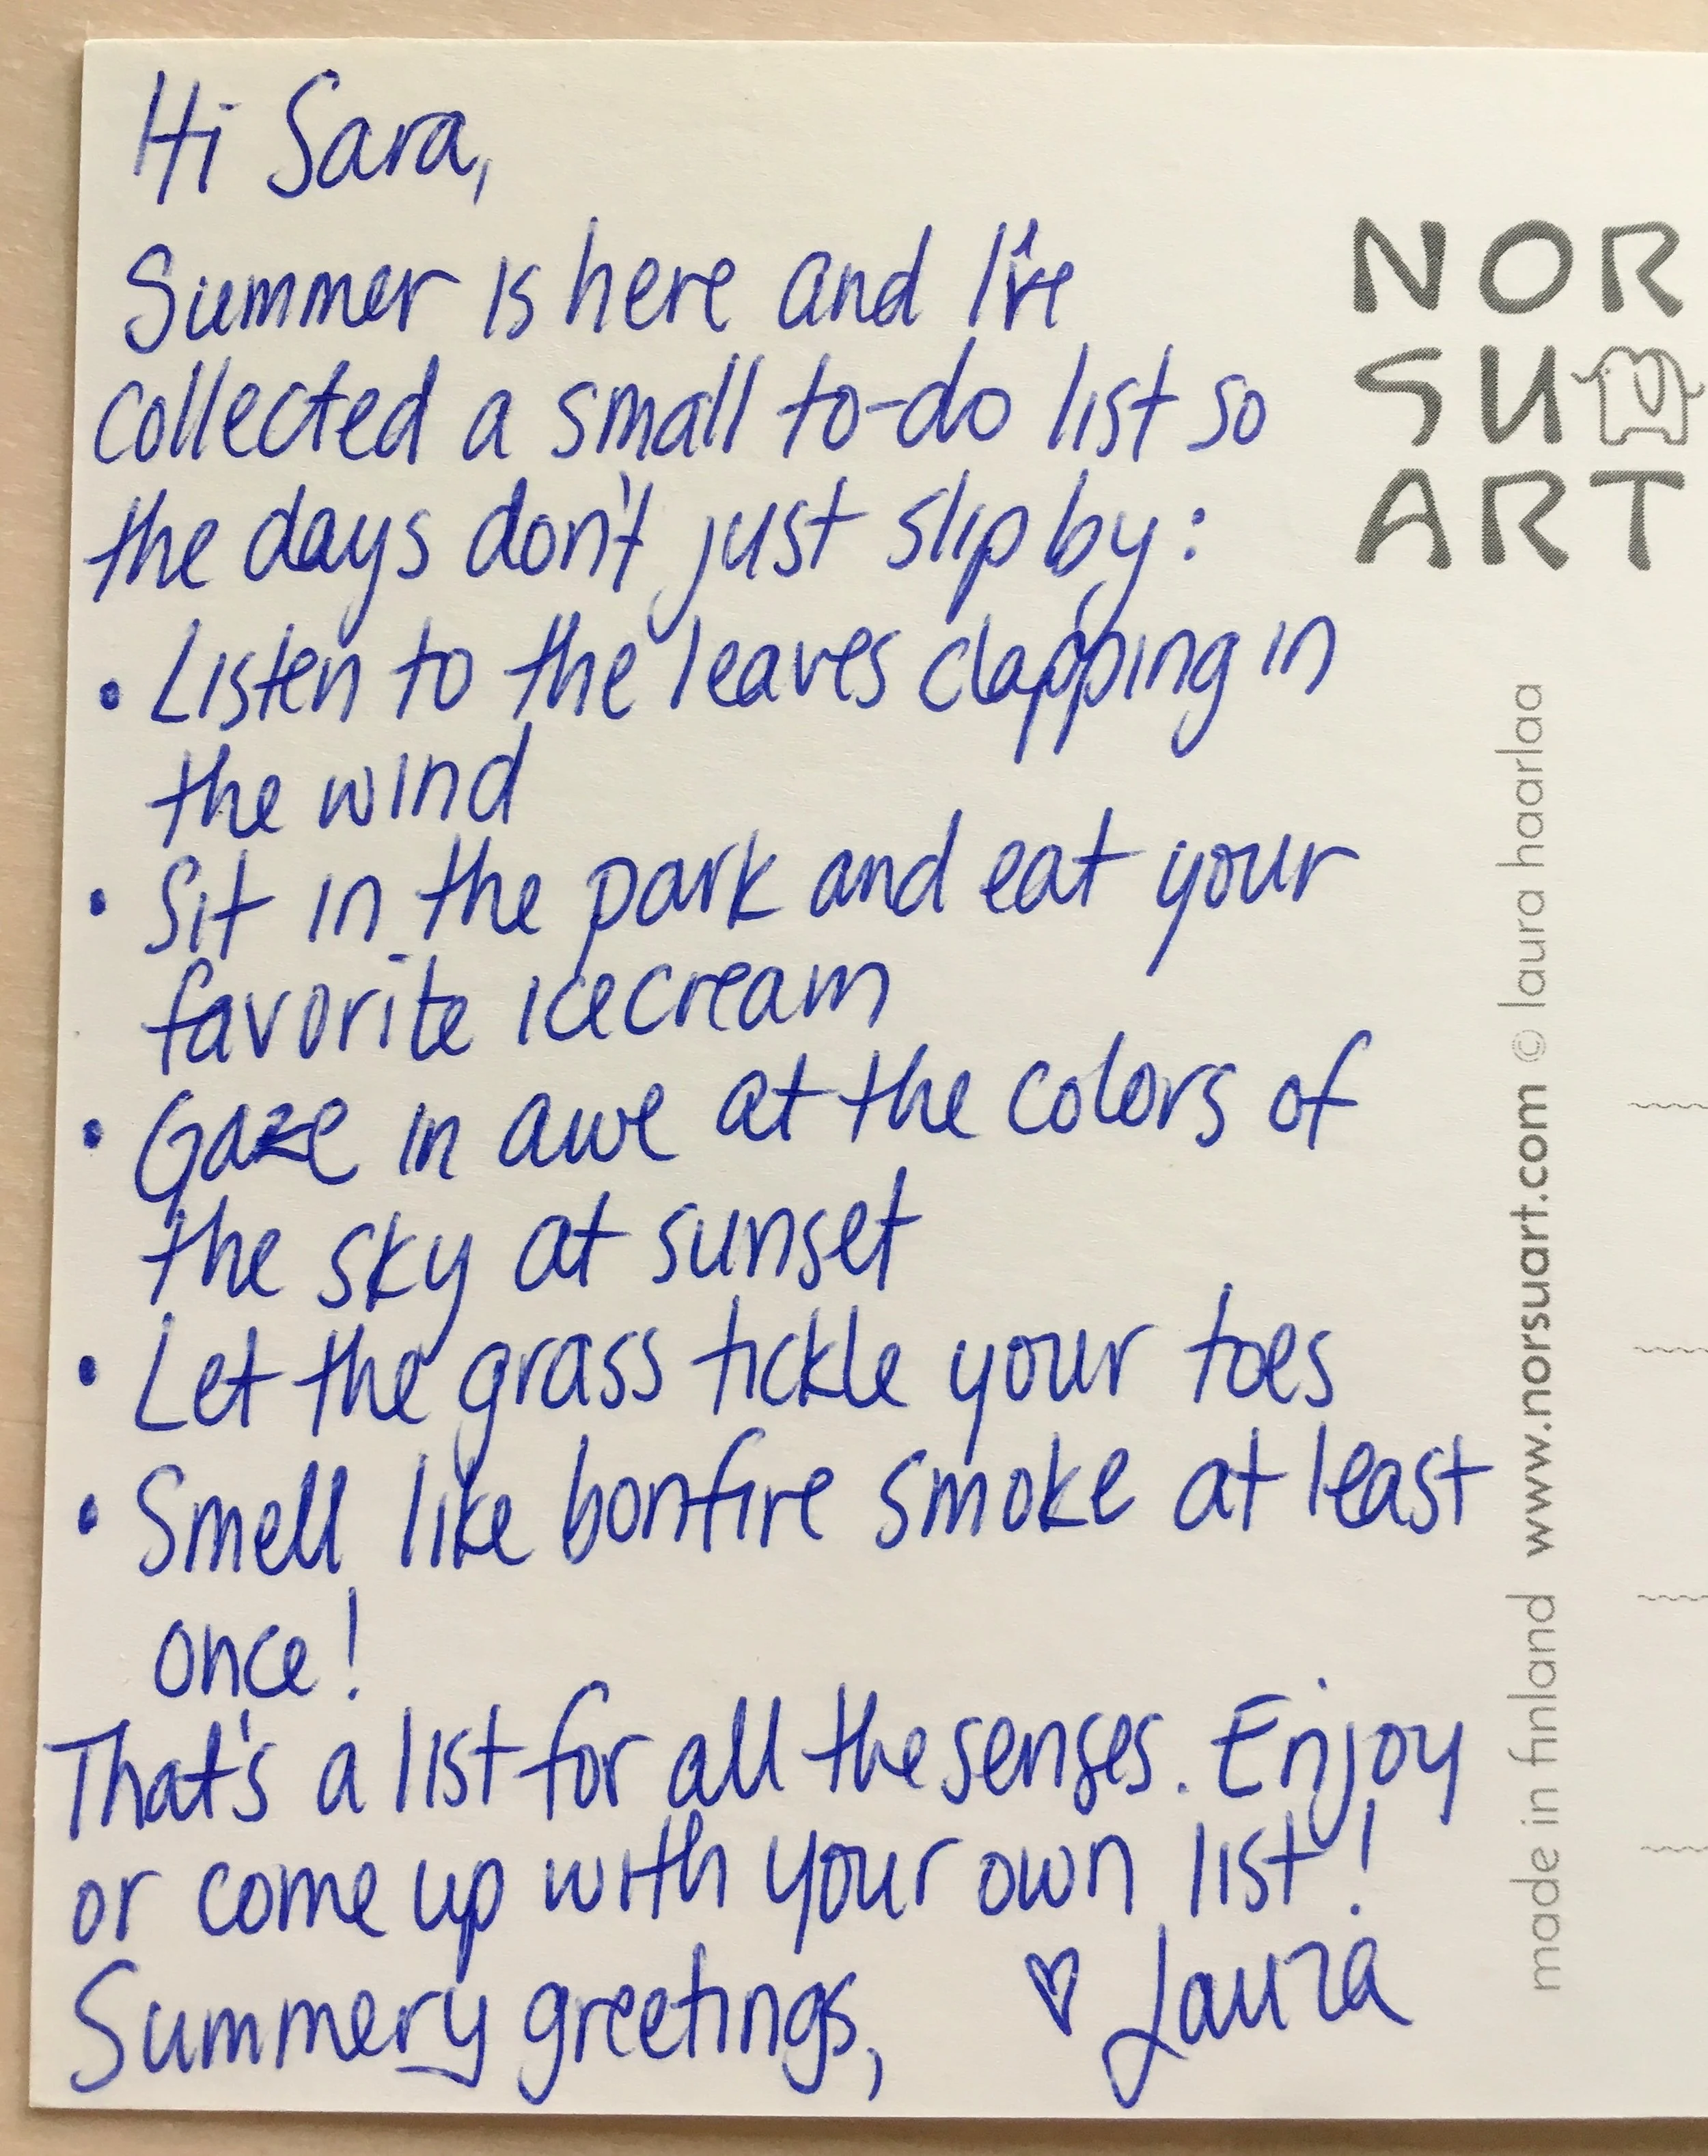 Hi Sara,
Summer is here and I've
collected a small to-do list so
the days don't just slip by:
• Listen to the leaves clapping in
the wind
• Sit in the park and eat your
favorite icecream
• Gaze in awe at the colors of
the sky at sunset
• Let the grass tickle your toes
• Smell like bonfire smoke at least
once!
That's a list for all the senses. Enjoy
or come up with your own list!
Summery greetings, ♡ Laura
NOR
SU
ART
made in finland www.norsuart.com © laura haarlaa